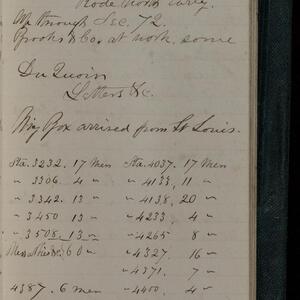 Rode North early.
Up through Sec. 72.
Brooks & Co. at work, some
Du Quoin
Letters &c.
Wm Fox arrived from St Louis.
Sta. 3232. 17 Men Sta. 4037. 17 Men
" 3306 4 " " 4133. 11 "
" 3342. 13 " " 4138. 20 "
" 3450 13 " " 4233 4 "
" 3508. 13 " " 4265 8 "
60 " " 4327. 16 "
" 4371. 7 "
4387. 6 men " 4400. 4 "